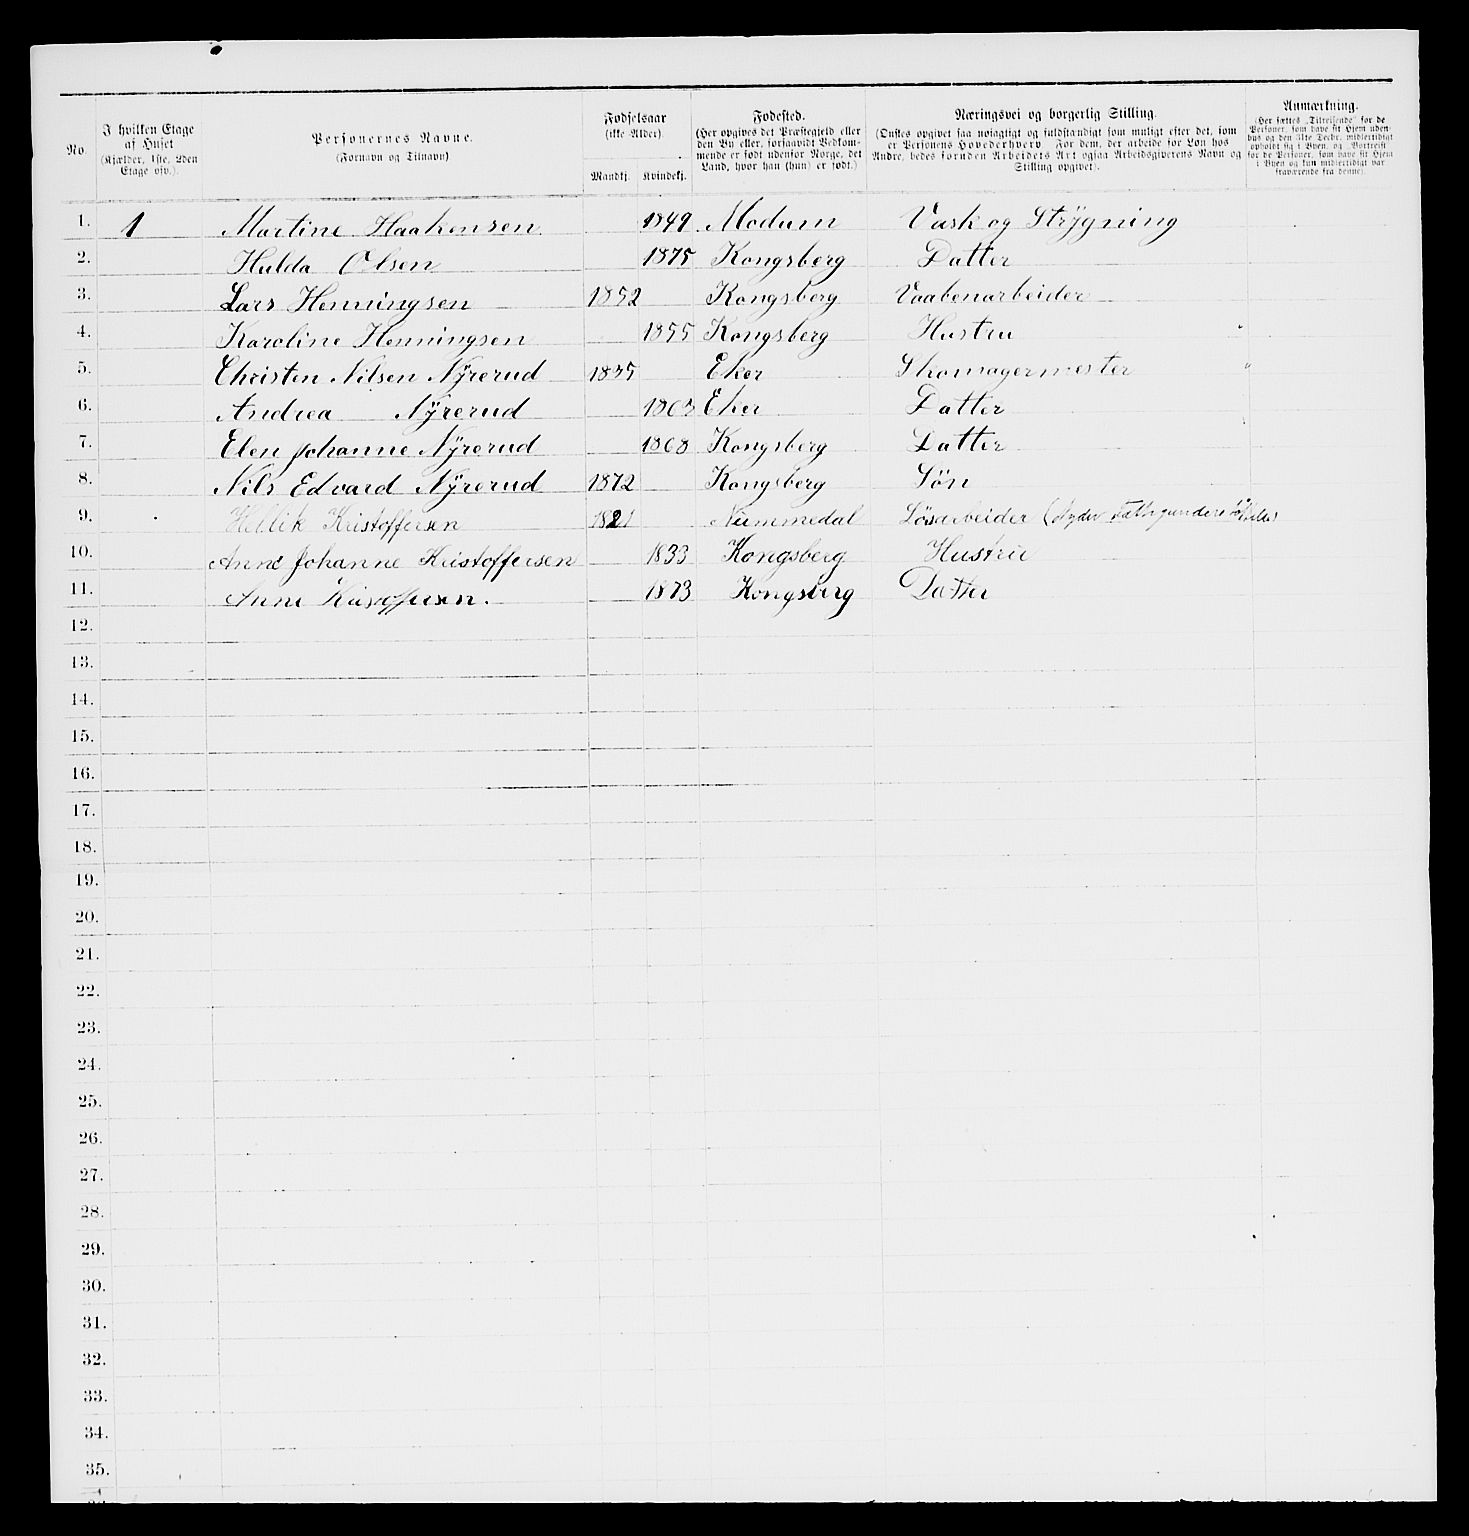 No.
I hvilken Etage af Huset (Kjælder, 1ste, 2den Etage osv.).
Personernes Navne. (Fornavn og Tilnavn)
Fødselsaar (ikke Alder). Mandkj. Kvindekj.
Fødested. (Her opgives det Præstegjeld eller den By eller, forsaavidt Vedkommende er født udenfor Norge, det Land, hvor han (hun) er født.)
Næringsvei og borgerlig Stilling. (Ønskes opgivet saa nøiagtigt og fuldstændigt som muligt efter det, som er Personens Hovederhverv For dem, der arbeide for Løn hos Andre, bedes foruden Arbeidets Art ogsaa Arbeidsgiverens Navn og Stilling opgivet).
Anmærkning. (Her sættes „Tilreisende" for de Personer, som have sit Hjem udenbys og den 31te Decbr. midlertidigt opholdt sig i Byen, og „Bortreist" for de Personer, som have sit Hjem i Byen og kun midlertidigt var fraværende fra denne).
1. 1 Martine Haakensen 1849 Modum Vask og Strygning
2. Hulda Olsen 1875 Kongsberg Datter
3. Lars Henningsen 1852 Kongsberg Vaabenarbeider
4. Karoline Henningsen 1855 Kongsberg Hustru "
5. Christen Nilsen Nÿrerud 1835 Eker Skomagermester "
6. Andrea Nÿrerud 1863 Eker Datter
7. Elen Johanne Nÿrerud 1868 Kongsberg Datter
8. Nils Edvard Nÿrerud 1872 Kongsberg Søn
9. Hellik Kristoffersen 1821 Nummedal Løsarbeider (Nyder
10. Anne Johanne Kristoffersen 1833 Kongsberg Hustru
11. Anne Kristoffersen. 1873 Kongsberg Datter
12.
13.
14.
15.
16.
17.
18.
19.
20.
21.
22.
23.
24.
25.
26.
27.
28.
29.
30.
31.
32.
33.
34.
35.